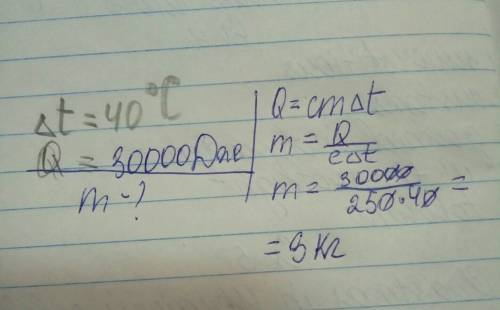 Δt = 40°C
Q = 30000 Дж
m - ?
Q = cmΔt
m = Q / cΔt
m = 30000 / 250·40 =
= 3 кг